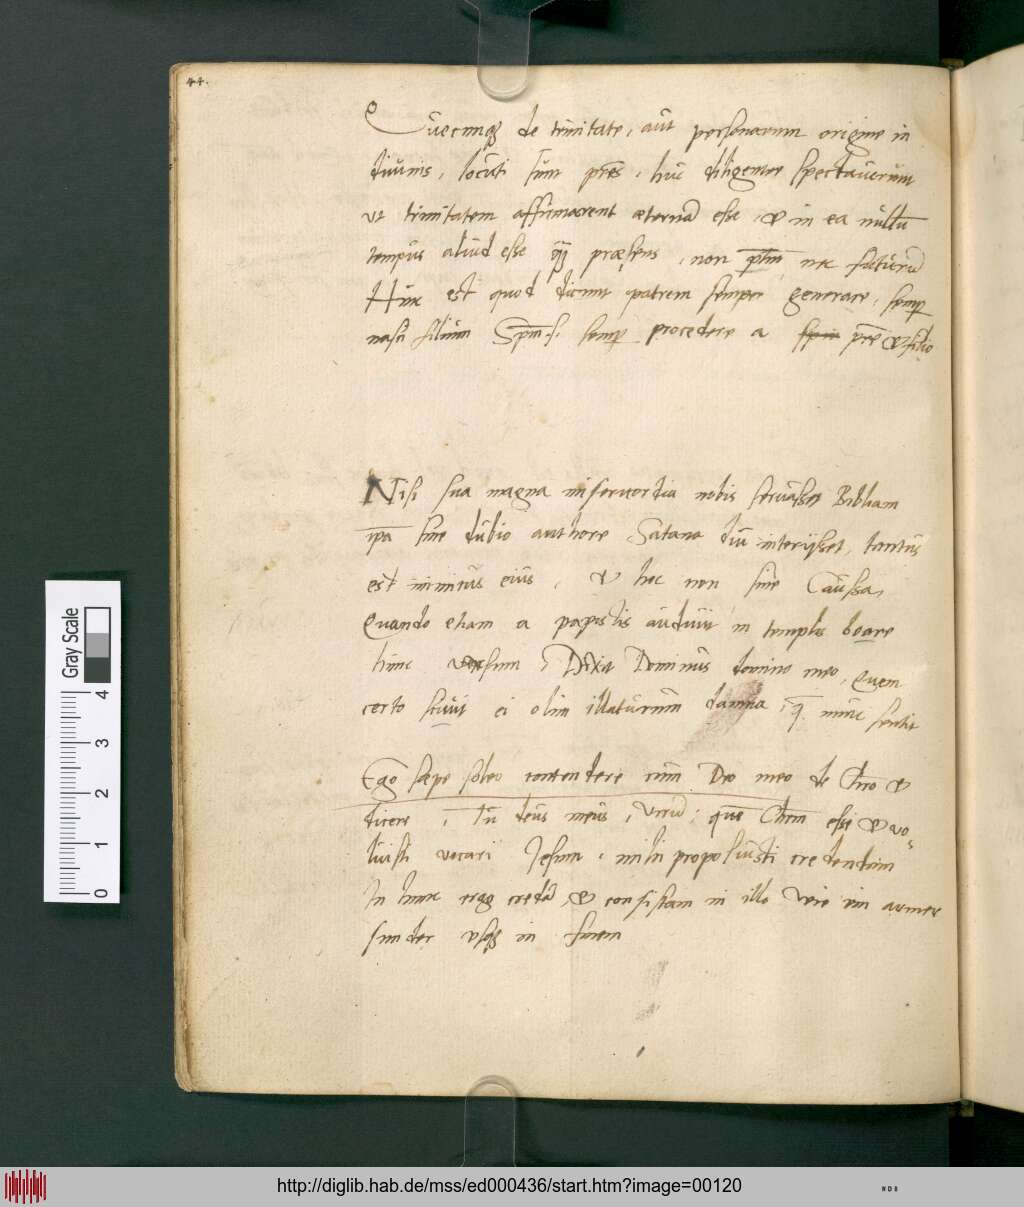 44.
Quecunq; de trinitate, aut personarum origine in
divinis, locuti sunt pres, huc diligenter spectaverunt
ut trinitatem affirmarent æternã esse, & in ea nullũ
tempus aliud esse præsens, non nec futurũ
Hinc est quod dicunt patrem semper generare, semp
nasci filium Spm .s. semp procedere a prē & filio
Nisi sua magna misericordia nobis servasset Bibliam
ipa sine dubio authore Satana diu interijsset, tantus
est inimicus eius, & hoc non sine Caussa,
Quando etiam a papistis audivit in templis boare
hunc versum, Dixit Dominus domino meo, Quem
certo scivit ei olim illaturum damna, q nunc sentit
Ego sæpe soleo contendere cum Deo meo de Chro &
dicere, Tu deus meus, que Chrm esse & vo-
luisti vocari Jesum, mihi proposuisti credendum
In hunc ergo credã, & consistam in illo wie ein armer
sunder usq; in finem
Gray Scale
4
3
2
1
0
http://diglib.hab.de/mss/ed000436/start.htm?image=00120